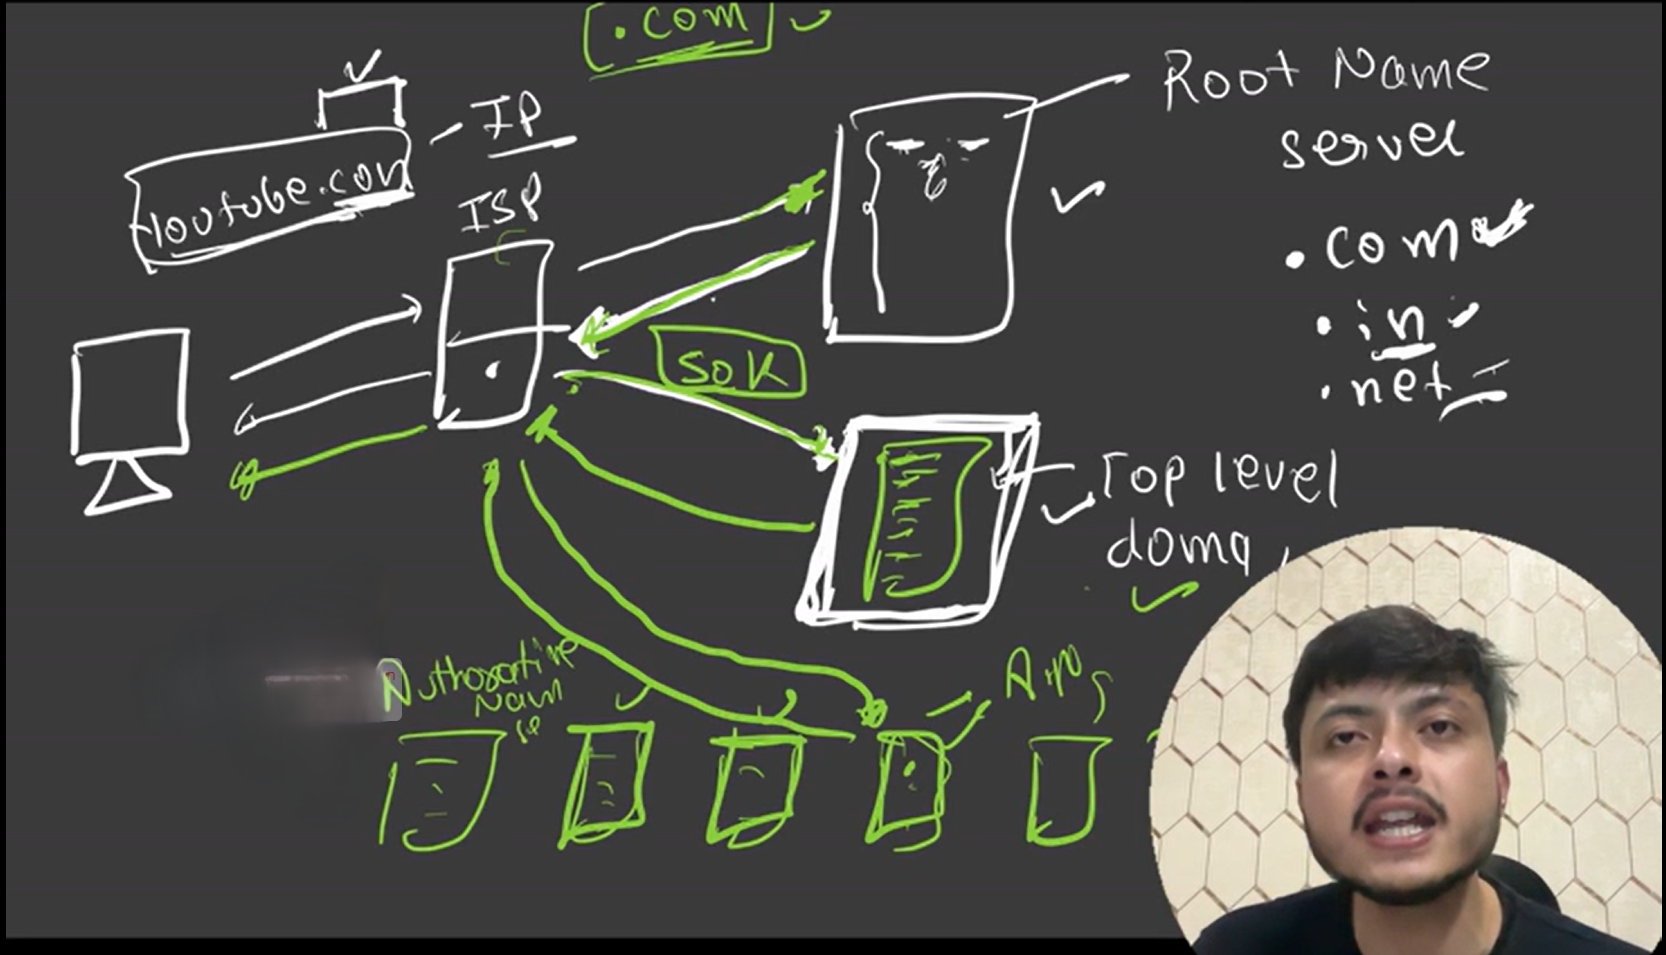 .com
IP
Youtube.com
ISP
Root Name
server
.com
.in
.net
50K
Top level
doma
Authorative
Nam